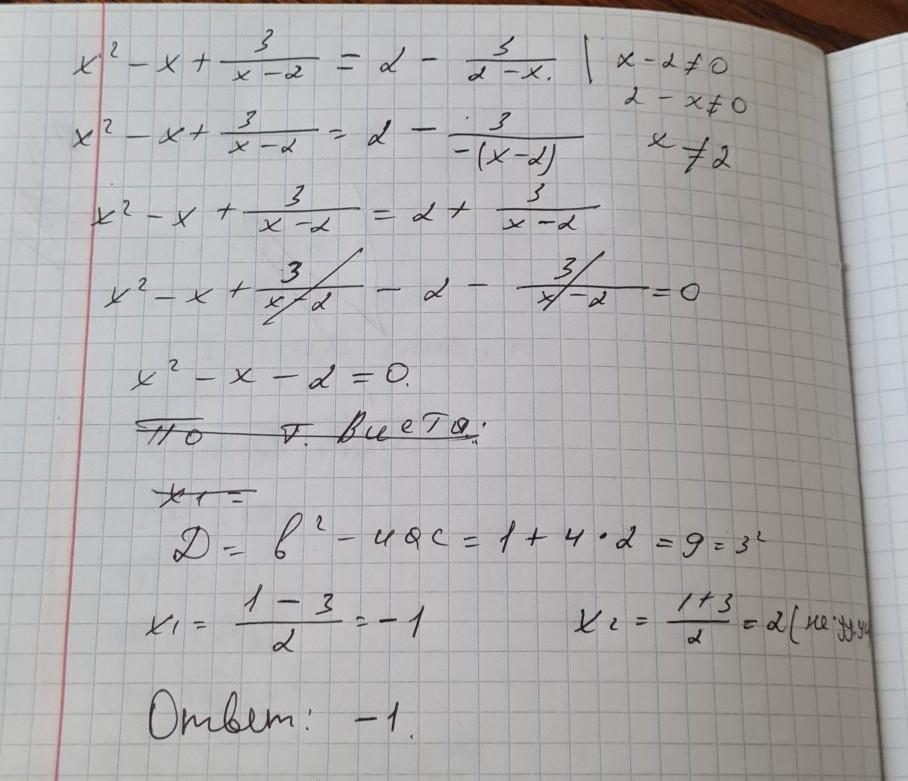 x² − x + 3/(x − 2) = 2 − 3/(2 − x). | x − 2 ≠ 0
2 − x ≠ 0
x² − x + 3/(x − 2) = 2 − 3/(−(x − 2)) x ≠ 2
x² − x + 3/(x − 2) = 2 + 3/(x − 2)
x² − x + 3/(x − 2) − 2 − 3/(x − 2) = 0
x² − x − 2 = 0.
По т. Виета:
x₁ =
D = b² − 4ac = 1 + 4 · 2 = 9 = 3²
x₁ = (1 − 3)/2 = −1 x₂ = (1 + 3)/2 = 2 (не
Ответ: −1.